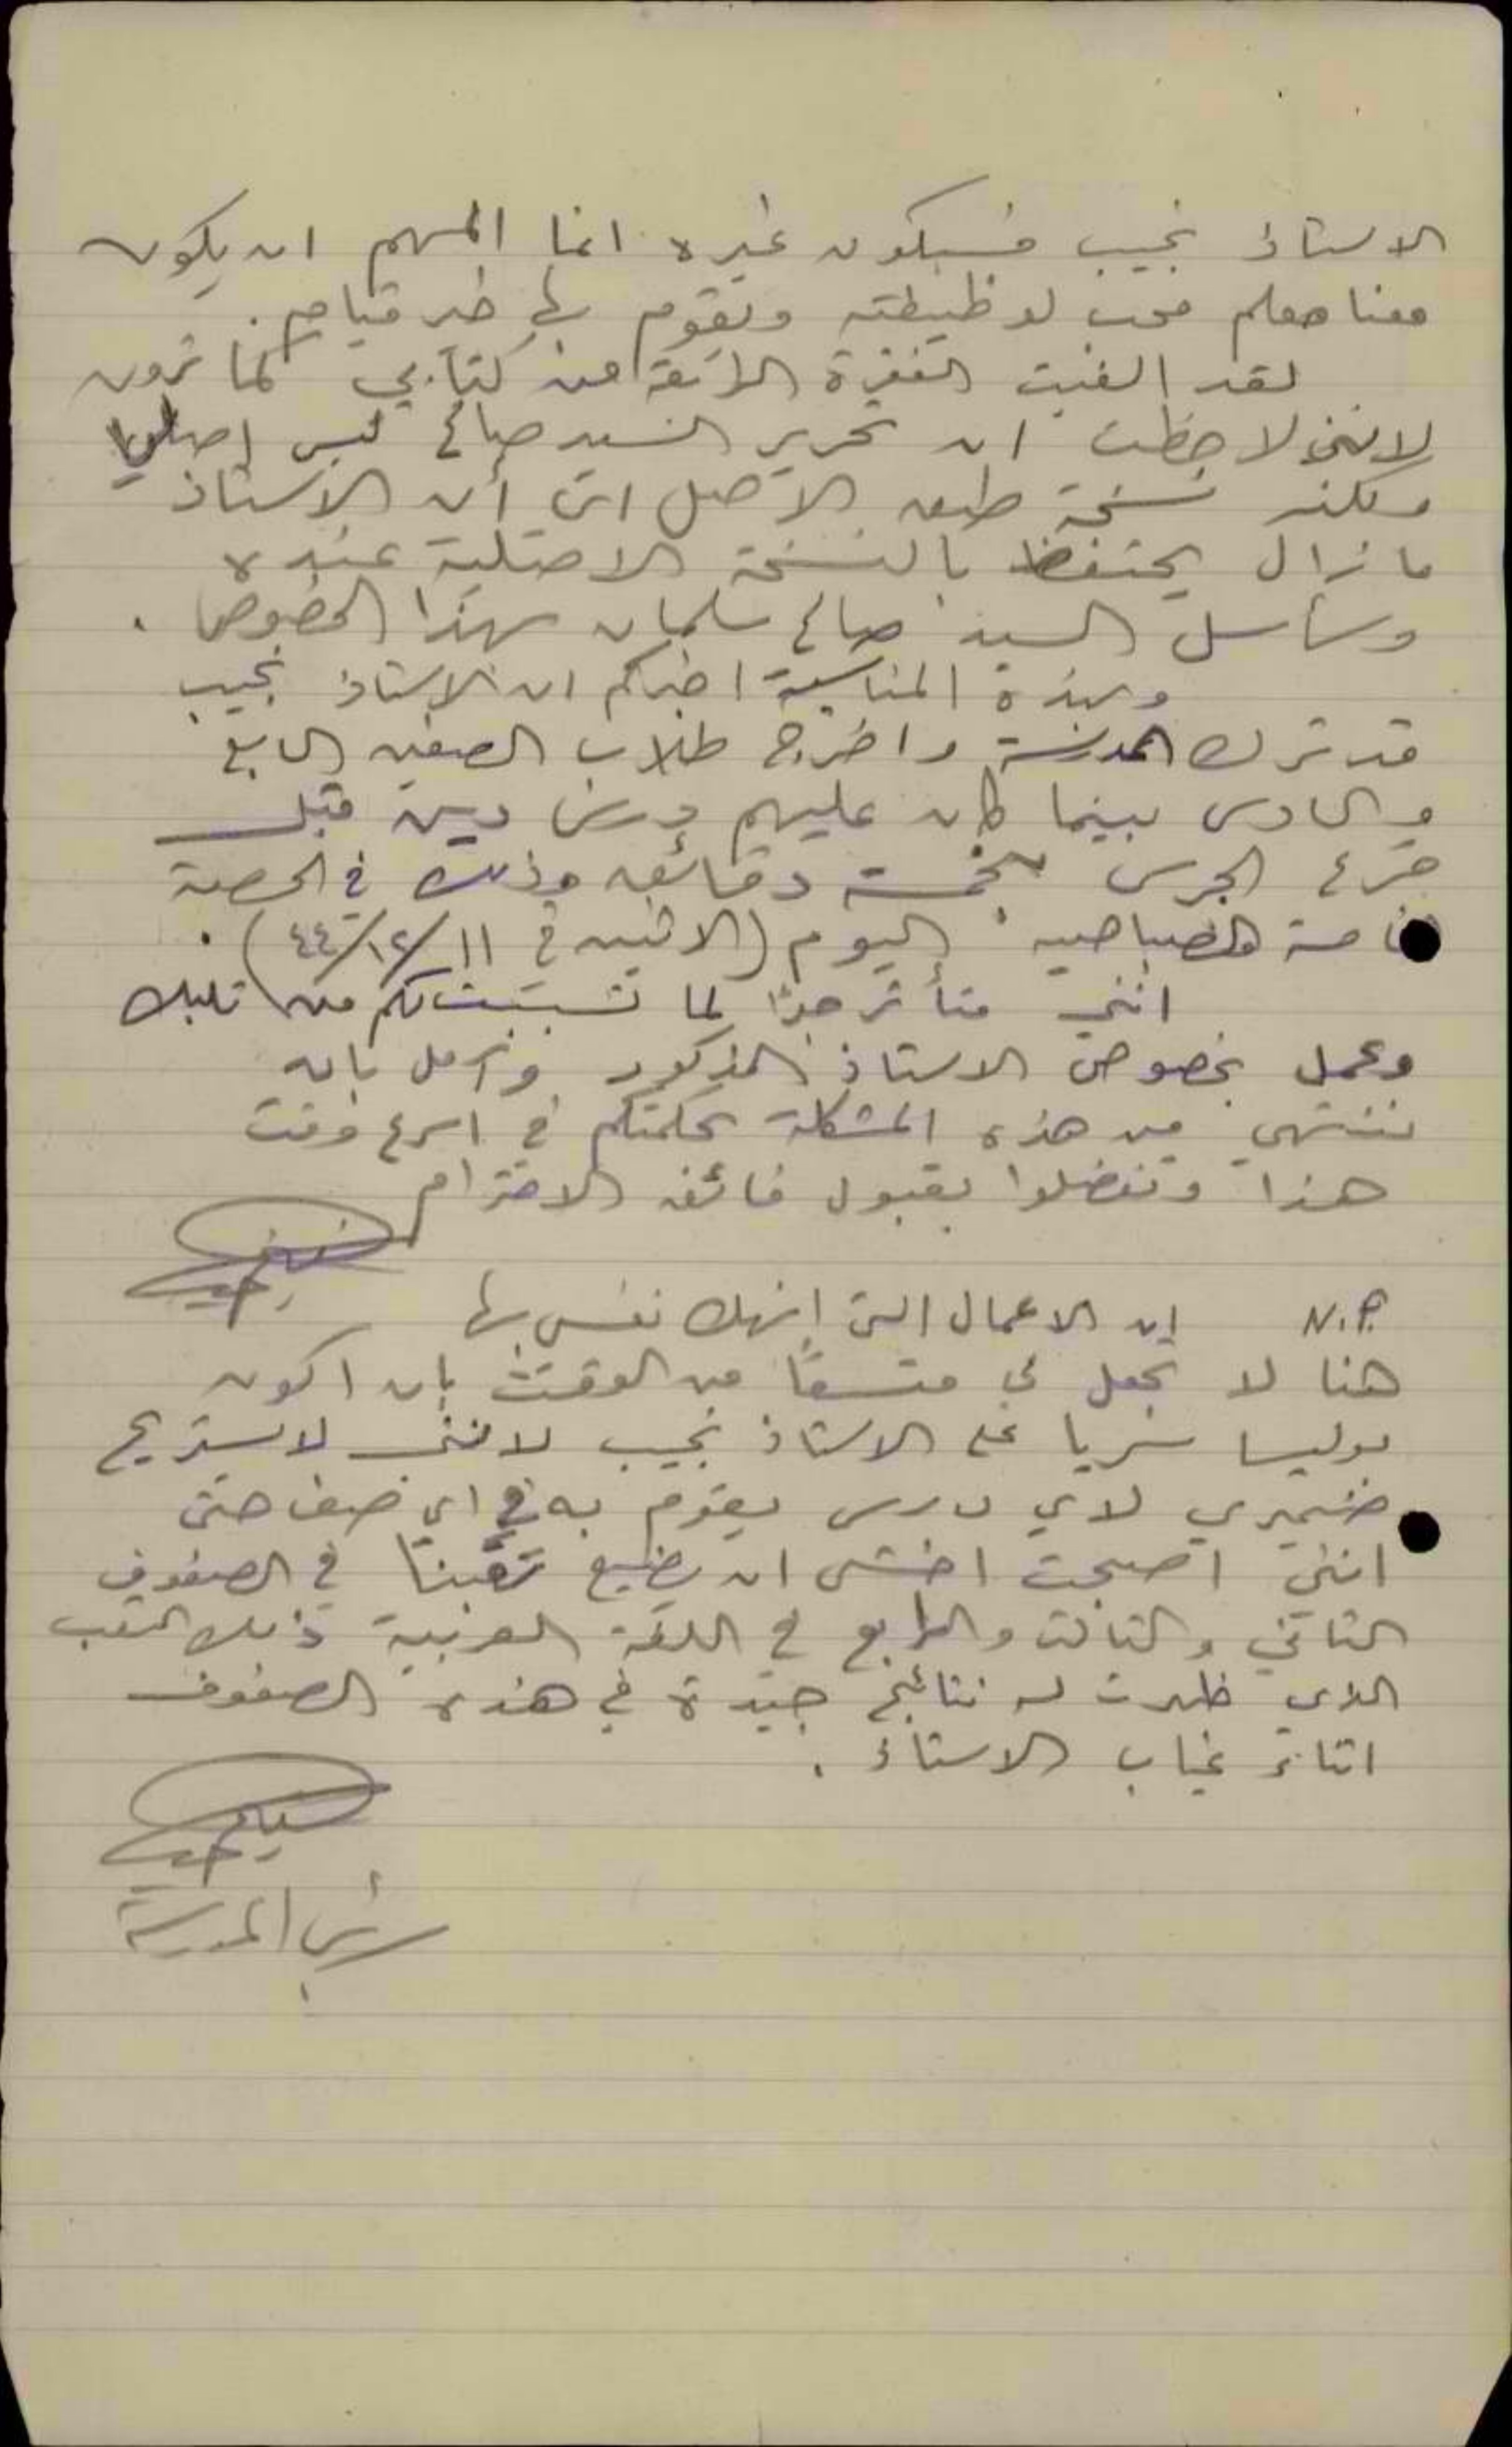 الاستاذ نجيب فسيكون غيره انما المهم ان يكون
معنا معلم محب لوظيفته ويقوم بها خير قيام.
لقد الغيت الفقرة الرابعة من كتابي كما ترون
لانني لاحظت ان تحرير السيد صالح ليس اصليا
ولكنه نسخة طبق الاصل اي أن الاستاذ
ما زال يحتفظ بالنسخة الاصلية عنده
وسأسل السيد صالح سلمان بهذا الخصوص.
وبهذه المناسبة اخبركم ان الاستاذ نجيب
قد ترك المدرسة واخرج طلاب الصفين الرابع
والسادس بينما كان عليهم درس دين قبل
قرع الجرس بخمسة دقائق وذلك في الحصة
الخامسة الصباحية اليوم (الاثنين في ١١/١٢/٤٤).
انني متأثر جدا لما تسببت لكم من تلبك
وعمل بخصوص الاستاذ المذكور وآمل بان
ننتهي من هذه المشكلة بحكمتكم في اسرع وقت
هذا وتفضلوا بقبول فائق الاحترام
N.P. ان الاعمال التي انهك نفسي بها
هنا لا تجعل لي متسعا من الوقت بان اكون
بوليسا سريا على الاستاذ نجيب لانني لا يستريح
ضميري لاي درس يقوم به في اي صف حتى
انني اصبحت اخشى ان يضيع تعبنا في الصفوف
الثاني والثالث والرابع في اللغة العربية ذلك التعب
الذي ظهرت له نتائج جيدة في هذه الصفوف
اثناء غياب الاستاذ.
رئيس المدرسة